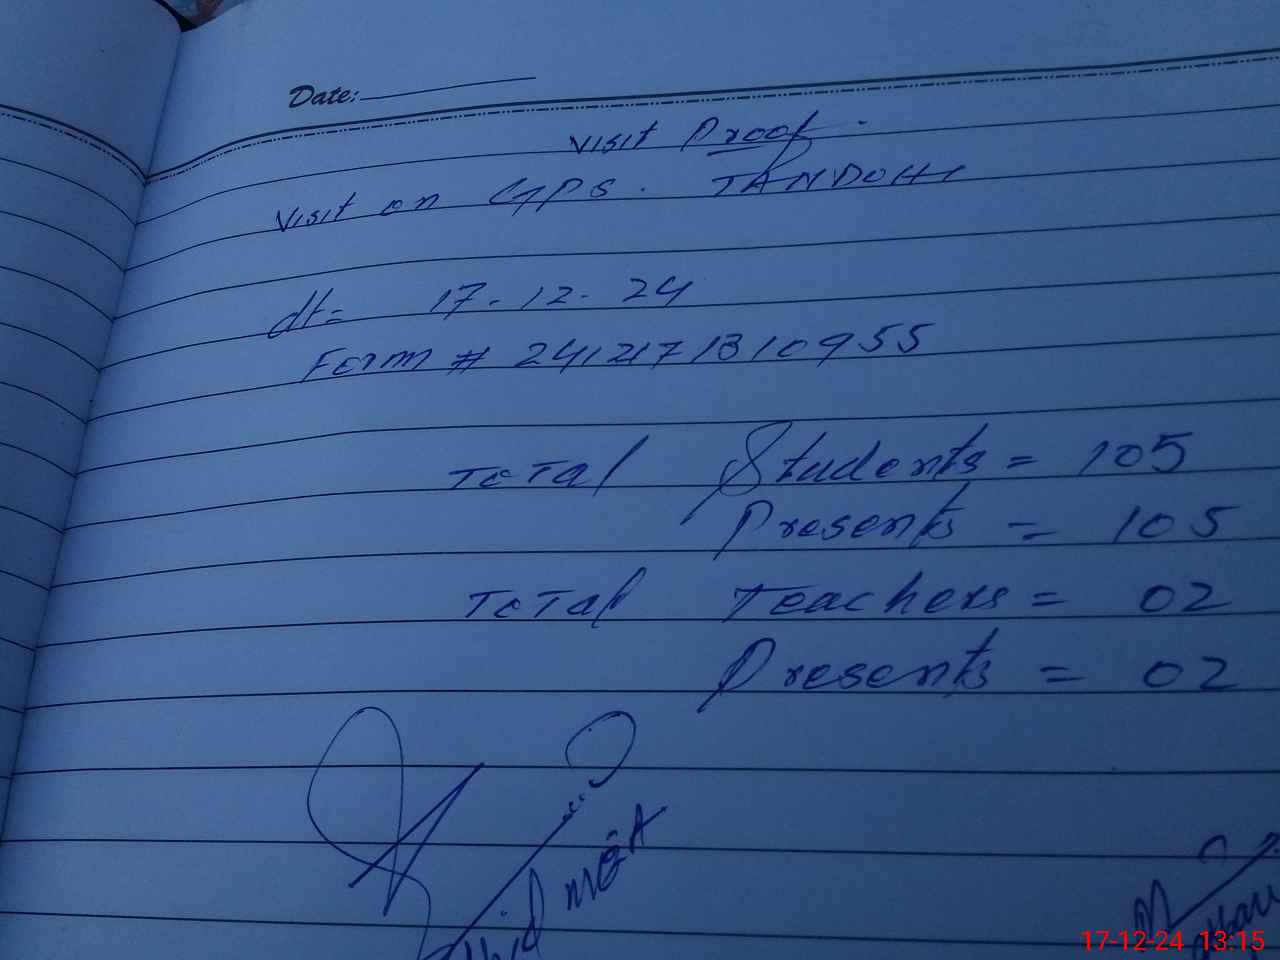 Date:
Visit Proof.
Visit on GPS. TANDOHI
dt= 17.12.24
Form # 2412171310955
Total Students = 105
Presents = 105
Total Teachers = 02
Presents = 02
17-12-24 13:15